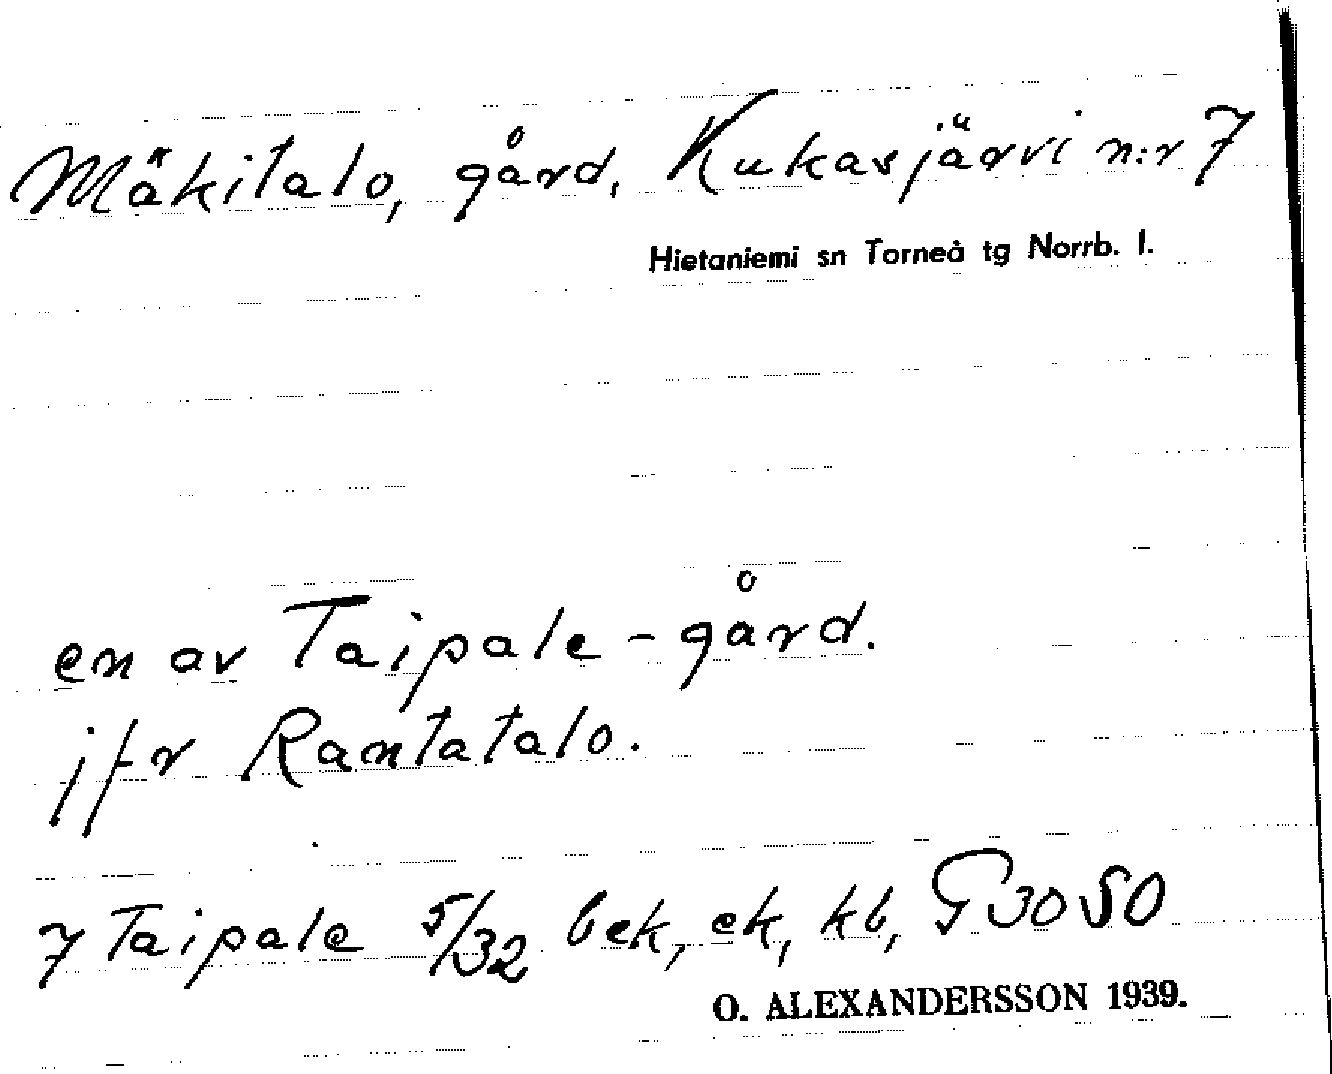 Mäkitalo, gård, Kukasjärvi n:r 7
Hietaniemi sn Torneå tg Norrb. l.
en av Taipale-gård.
jfr Rantatalo.
7 Taipale 5/32 bek, ek, kb, G 3050
O. ALEXANDERSSON 1939.